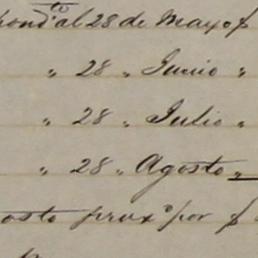 pond.to al 28 de Mayo
" 28 " Junio "
" 28 " Julio "
" 28 " Agosto "
osto prox.o por